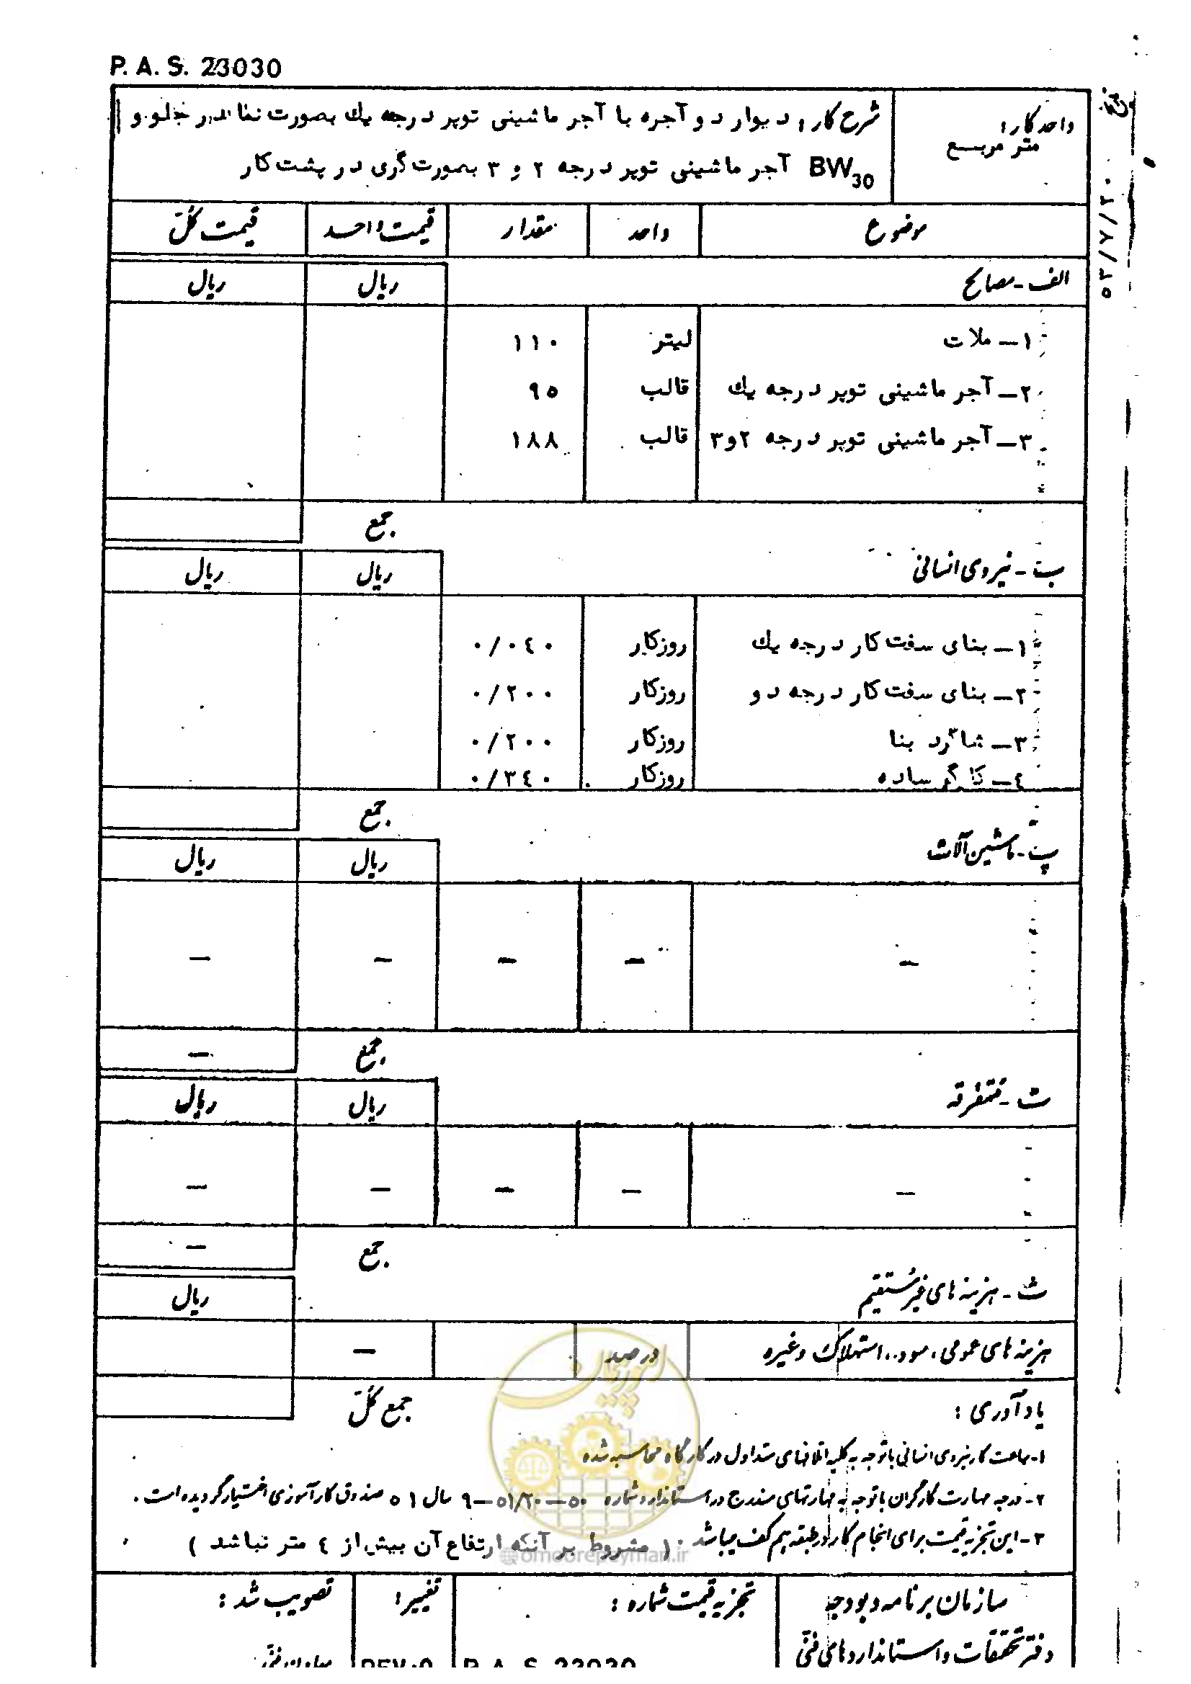 P. A. S. 23030
واحد کار:
متر مربع
شرح کار: دیوار دو آجره با آجر ماشینی توپر درجه یک بصورت نما در جلو و
BW30 آجر ماشینی توپر درجه ۲ و ۳ بصورت گری در پشت کار
۵۳/۷/۳۰
موضوع واحد مقدار قیمت واحد قیمت کل
الف - مصالح ریال ریال
۱- ملات لیتر ۱۱۰
۲- آجر ماشینی توپر درجه یک قالب ۹۵
۳- آجر ماشینی توپر درجه ۲و۳ قالب ۱۸۸
جمع
ب - نیروی انسانی ریال ریال
۱- بنای سفت کار درجه یک روزکار ۰/۰۴۰
۲- بنای سفت کار درجه دو روزکار ۰/۲۰۰
۳- شاگرد بنا روزکار ۰/۲۰۰
۴- کارگر ساده روزکار ۰/۳۴۰
جمع
پ - ماشین آلات ریال ریال
— — — — —
جمع —
ت - متفرقه ریال ریال
— — — — —
جمع —
ث - هزینه های غیر مستقیم ریال
هزینه های عمومی، سود، استهلاک وغیره درصد —
یادآوری: جمع کل
۱- ساعت کار نیروی انسانی با توجه به کلیه اتلافهای متداول در کارگاه محاسبه شده
۲- درجه مهارت کارگران با توجه به مهارتهای مندرج در استاندارد شماره ۵۰-۵۱/۲۰-۹ سال ۵۱ صندوق کارآموزی اختیار گردیده است.
۳- این تجزیه قیمت برای انجام کار در طبقه هم کف میباشد. ( مشروط بر آنکه ارتفاع آن بیش از ۴ متر نباشد )
@omoorepeyman.ir
امور پیمان
سازمان برنامه و بودجه تجزیه قیمت شماره: تغییر: تصویب شد:
دفتر تحقیقات و استانداردهای فنی P. A. S. 23030 REV:0 معاون فنی